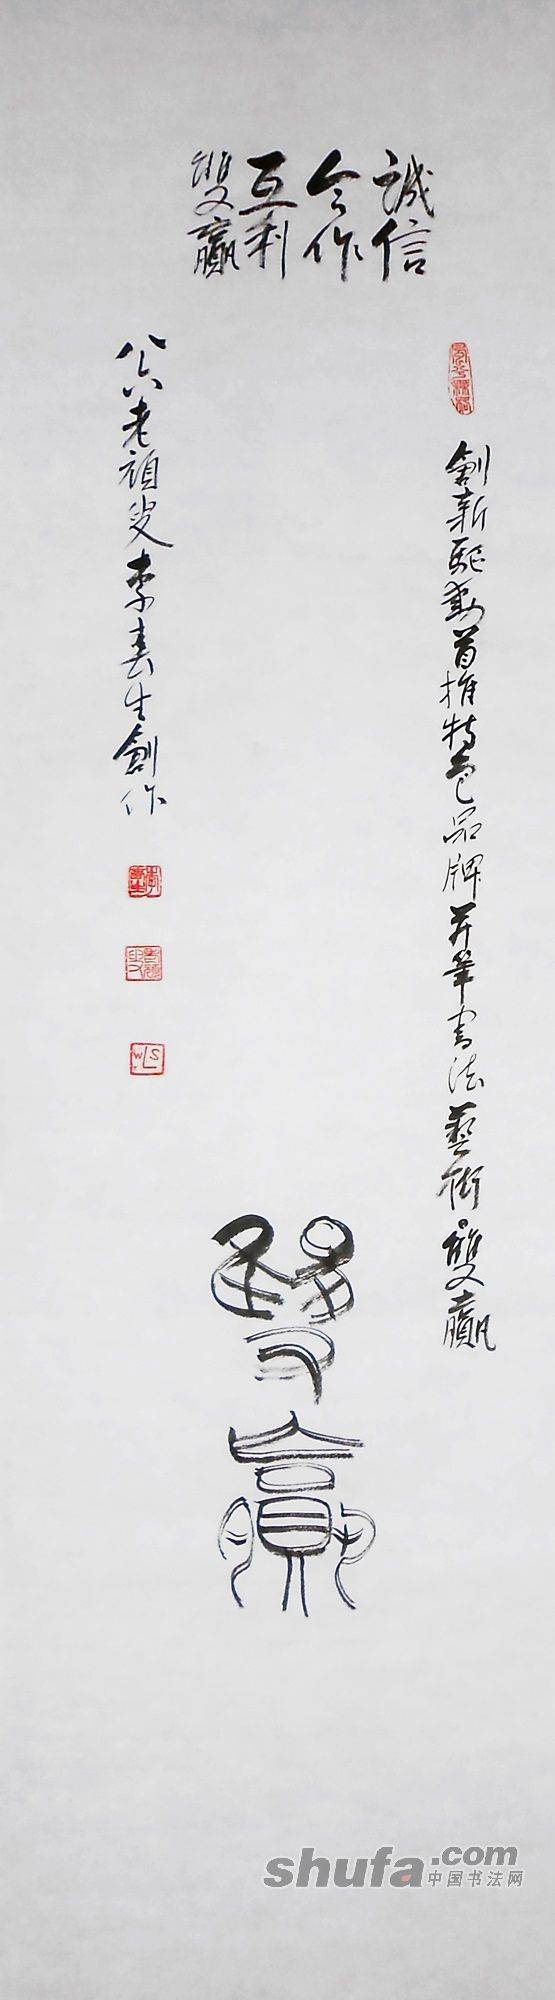 誠信
合作
互利
雙贏
創新驅動首推特色品牌并筆書法藝術雙贏
八六老頑叟李春生創作
WLS
雙贏
shufa.com
中国书法网